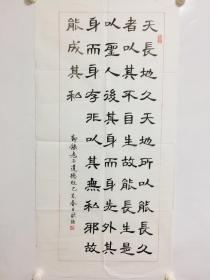 天長地久天地所以能長久
者以其不自生故能長生是
以聖人後其身而身先外其
身而身存非以其無私邪故
能成其私
道德經